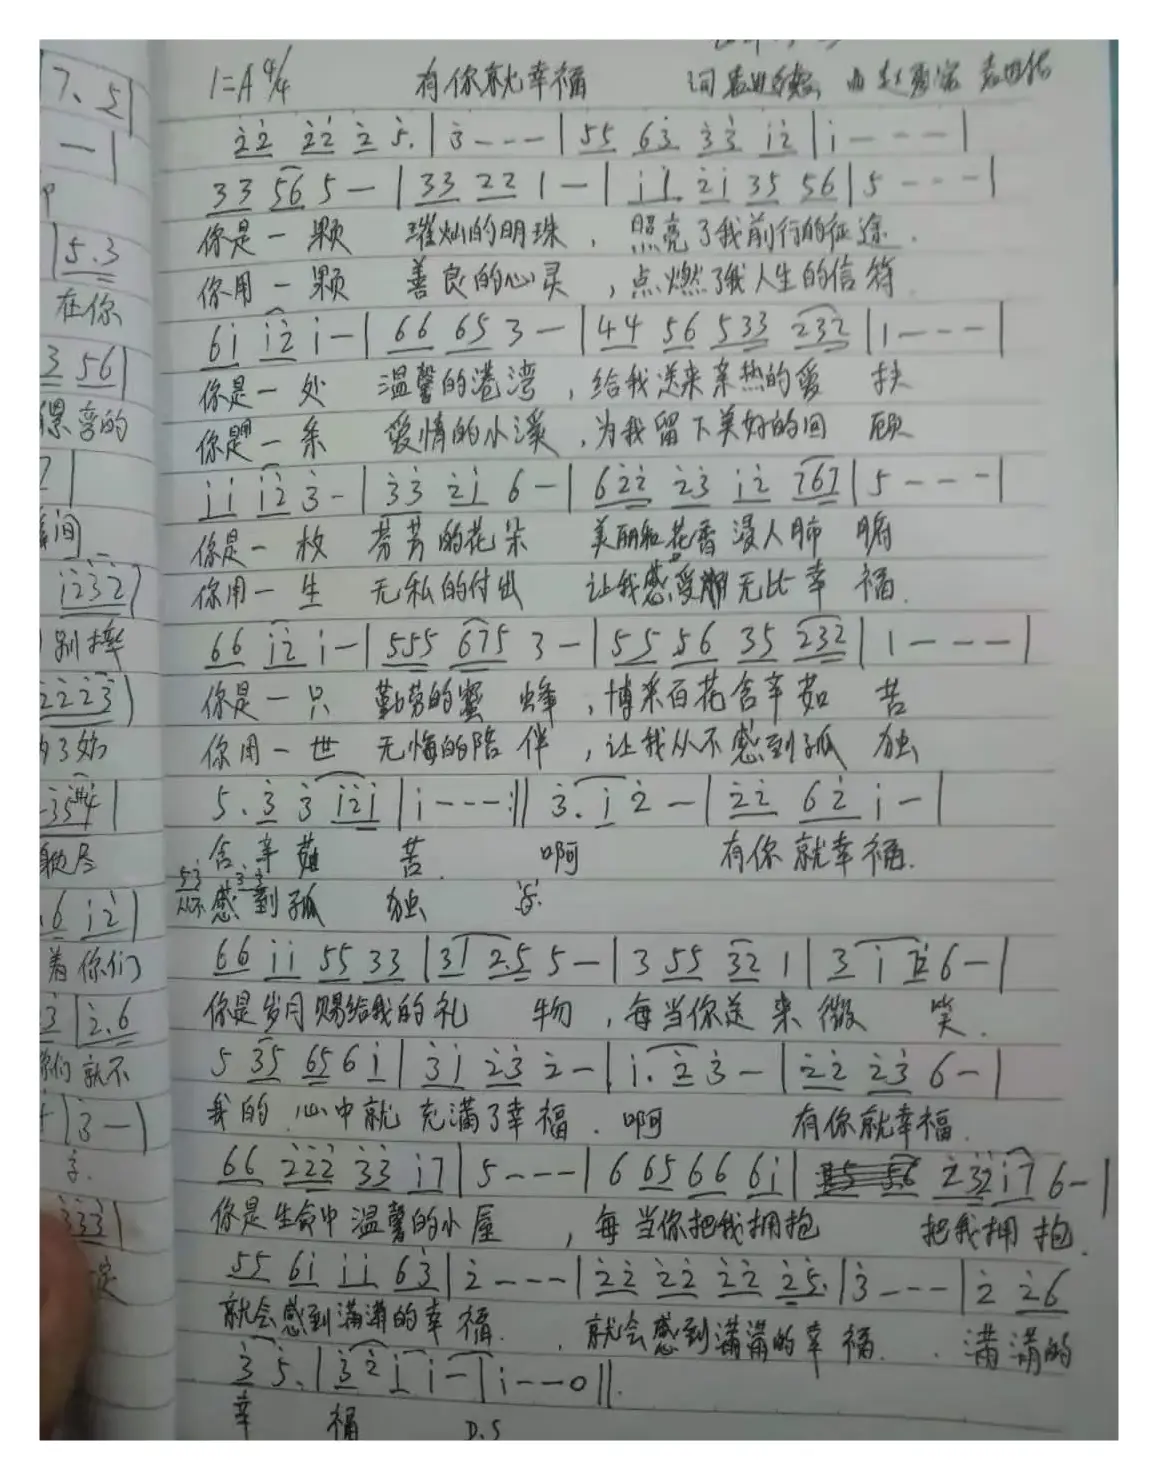 1=A 4/4 有你就幸福 词 曲
2̇2̇ 2̇2̇ 2̇ 5̇. | 3̇ - - - | 55 63̇ 3̇3̇ 1̇2̇ | 1̇ - - - |
33 56 5 - | 33 22 1 - | 1̇1̇ 2̇1̇ 35 56 | 5 - - - |
你是一颗 璀灿的明珠，照亮了我前行的征途.
你用一颗 善良的心灵，点燃了我人生的信符
61̇ 1̇2̇ 1̇ - | 66 65 3 - | 44 56 533 232 | 1 - - - |
你是一处 温馨的港湾，给我送来亲热的爱 扶
你是一条 爱情的小溪，为我留下美好的回 顾
1̇1̇ 1̇2̇ 3̇ - | 3̇3̇ 2̇1̇ 6 - | 62̇2̇ 2̇3̇ 1̇2̇ 767 | 5 - - - |
你是一枚 芬芳的花朵 美丽和花香浸人肺 腑
你用一生 无私的付出 让我感受无比幸 福.
66 1̇2̇ 1̇ - | 555 675 3 - | 55 56 35 232 | 1 - - - |
你是一只 勤劳的蜜 蜂，博采百花含辛茹 苦
你用一世 无悔的陪 伴，让我从不感到孤 独
5. 3̇ 3̇ 1̇2̇1̇ | 1̇ - - - :|| 3̇. 1̇ 2̇ - | 2̇2̇ 62̇ 1̇ - |
含辛茹 苦. 啊 有你就幸福.
53̇ 3̇3̇
从不感到孤 独
66 1̇1̇ 55 33 | 31 2.5 5 - | 3 55 32 1 | 3 1̇ 6 - |
你是岁月赐给我的礼 物，每当你送来微 笑.
5 35 65 6 1̇ | 3̇1̇ 2̇3̇ 2̇ - | 1̇. 2̇ 3̇ - | 2̇2̇ 2̇3̇ 6 - |
我的心中就充满了幸福. 啊 有你就幸福.
66 2̇2̇2̇ 3̇3̇ 1̇7 | 5 - - - | 6 65 66 61̇ | 2̇3̇2̇1̇7 6 - |
你是生命中温馨的小屋，每当你把我拥抱 把我拥抱.
55 61̇ 1̇1̇ 63̇ | 2̇ - - - | 2̇2̇ 2̇2̇ 2̇2̇ 2̇5̇. | 3̇ - - - | 2̇ 2̇6
就会感到满满的幸福. 就会感到满满的幸福. 满满的
3̇ 5̇. | 3̇2̇1̇ 1̇ - | 1̇ - - 0 ||.
幸 福 D.S
7. 5 |
- |
| 5.3
在你
3 56 |
的
7 |
间
1̇2̇3̇2̇ |
别
2̇2̇2̇3̇ |
了
.6 1̇2̇ |
着你们
3̇ | 2̇.6
你们就不
| 3̇ - |
3̇3̇3̇ |
定